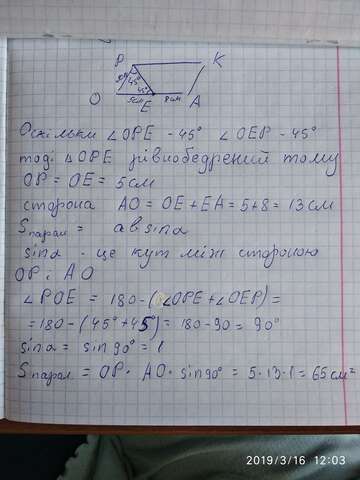 P K
45°
45°
O 5см E 8см A
Оскільки ∠OPE - 45° ∠OEP - 45°
тоді △OPE рівнобедрений тому
OP = OE = 5 см
сторона AO = OE + EA = 5 + 8 = 13 см
Sпарал = a b sin a
sin a - це кут між стороною
OP і AO
∠POE = 180 - (∠OPE + ∠OEP) =
= 180 - (45° + 45°) = 180 - 90 = 90°
sin a = sin 90° = 1
Sпарал = OP · AO · sin 90° = 5 · 13 · 1 = 65 см²
2019/3/16 12:03